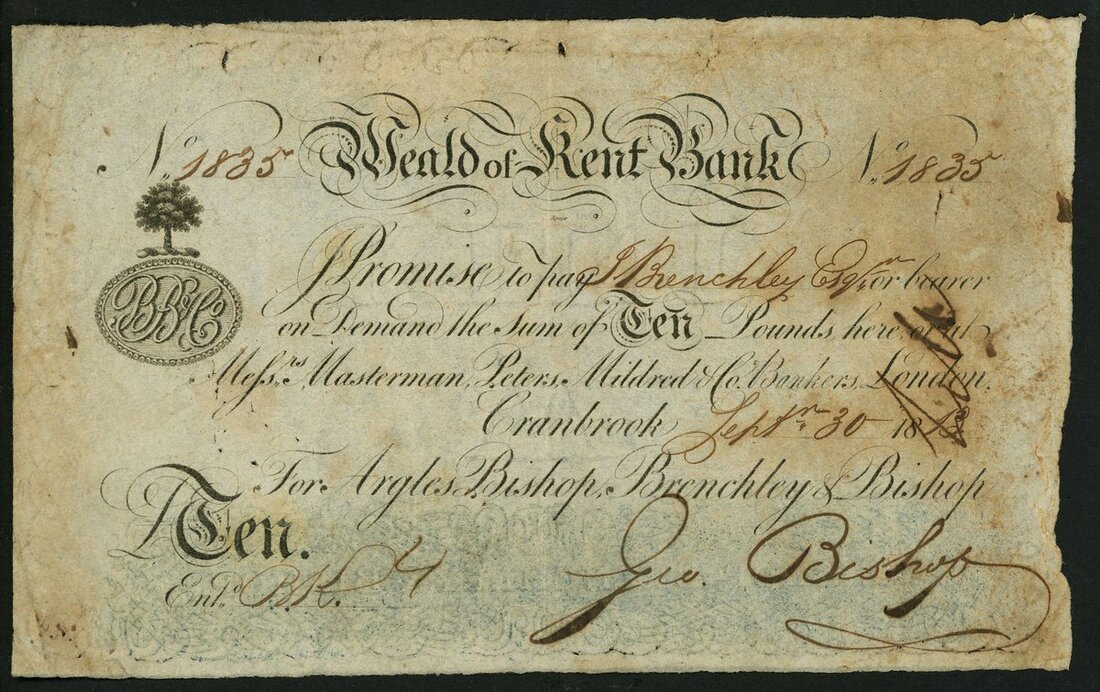 No. 1835 Weald of Kent Bank No. 1835
BB&Co
I Promise to pay J Brenchley Esqr. or bearer
on Demand the Sum of Ten Pounds here or at
Messrs. Masterman, Peters, Mildred & Co. Bankers, London.
Cranbrook Septr. 30 18
For Argles, Bishop, Brenchley & Bishop
£Ten.
Entd. Geo. Bishop